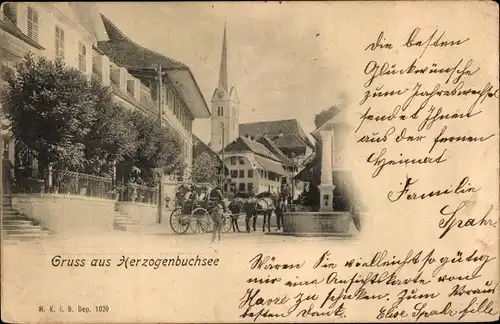 die besten
Glückwünsche
zum Jahreswechsel
sendet Ihnen
aus der fernen
Heimat
Familie
Spahr.
Gruss aus Herzogenbuchsee
Wären Sie vielleicht so gütig
mir eine Ansichtskarte von
Havre zu schicken. Zum Voraus
besten Dank. Elise Spahr fille.
R. K. i. B. Dep. 1920